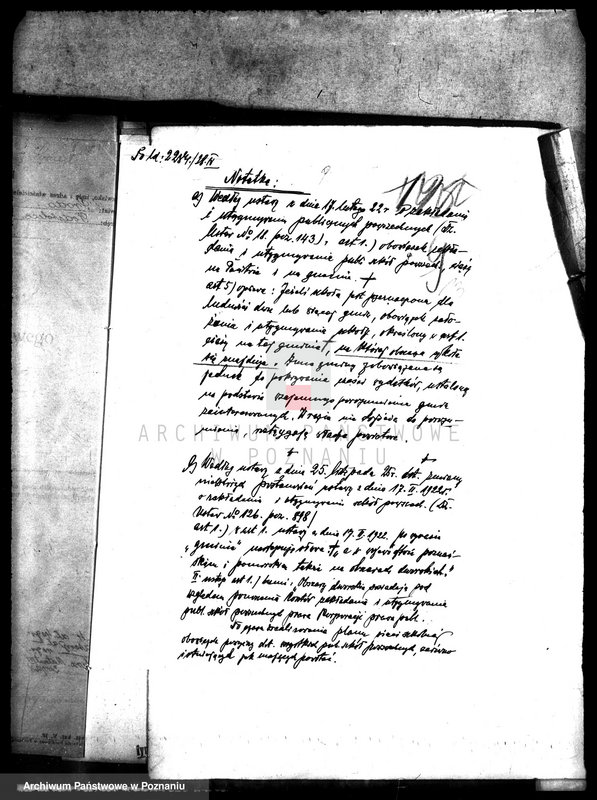 Notatka:
a) Według ustawy z dnia 17. lutego 22 r. o zakładaniu
i utrzymywaniu publicznych powszechnych (Dz.
Ustaw No 18. poz. 143), art. 1.) obowiązek zakła-
dania i utrzymywania publ. szkół powsz. ciąży
na Państwie i na gminie. +
art 5) opiewa: Jeżeli szkoła jest przeznaczona dla
ludności dwu lub więcej gmin, obowiązek zało-
żenia i utrzymywania szkoły, określony w art. 1.
ciąży na tej gminie +, na której obszarze szkoła
się znajduje. Inne gminy zobowiązane są
jednak do pokrywania części wydatków, ustalonej
na podstawie wzajemnego porozumienia gmin
zainteresowanych. W razie nie dojścia do porozu-
mienia, rozstrzyga władza powiatowa.
ARCHIWUM PAŃSTWOWE
W POZNANIU
b) Według ustawy z dnia 25. listopada 25r. dot. zmiany
niektórych postanowień ustawy z dnia 17. II. 1922r.
o zakładaniu i utrzymywaniu szkół powszech. (Dz.
Ustaw No 126. poz. 898)
art 1.) w art 1. ustawy z dnia 17. II. 1922. po wyrazie
"gminie" następuje słowa +, a w województwie poznań-
skim i pomorskim także na obszarach dworskich."
II ustęp art 1.) brzmi: Obszary dworskie posiadają pod
względem ponoszenia kosztów zakładania i utrzymywania
publ. szkół powszechnych prawa Korporacji prawa publ.
obowiązek dot. wszystkich publ. szkół powszechnych, zarówno
istniejących jak mających powstać.
Archiwum Państwowe w Poznaniu